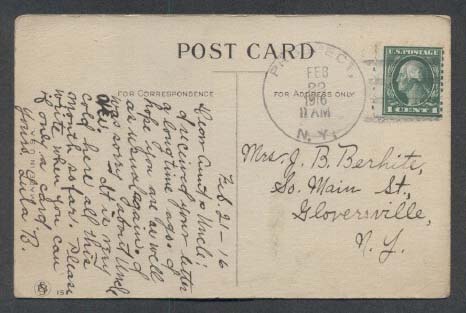 POST CARD
FOR CORRESPONDENCE
FOR ADDRESS ONLY
PROSPECT,
FEB
22
1916
11 AM
N.Y.
U.S. POSTAGE
1 CENT 1
Feb. 21-16
Dear Aunt & Uncle:
I received your letter
a long time ago & I
hope you are as well
as usual again. I
was sorry about Uncle
It is very
cold here all this
month so far. Please
write when you can
if only a card
Yours Lula B.
Mrs. J. B. Berhite,
So. Main St,
Gloversville,
N. Y.